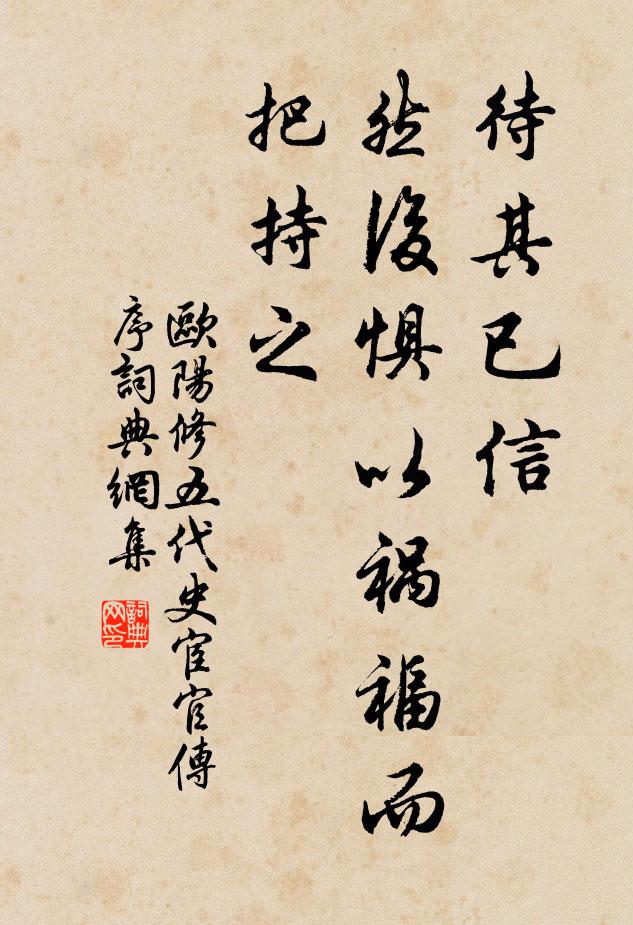 待其已信
然後惧以祸福而
把持之
歐陽修五代史宦官傳
序詞典網集
詞典
网印